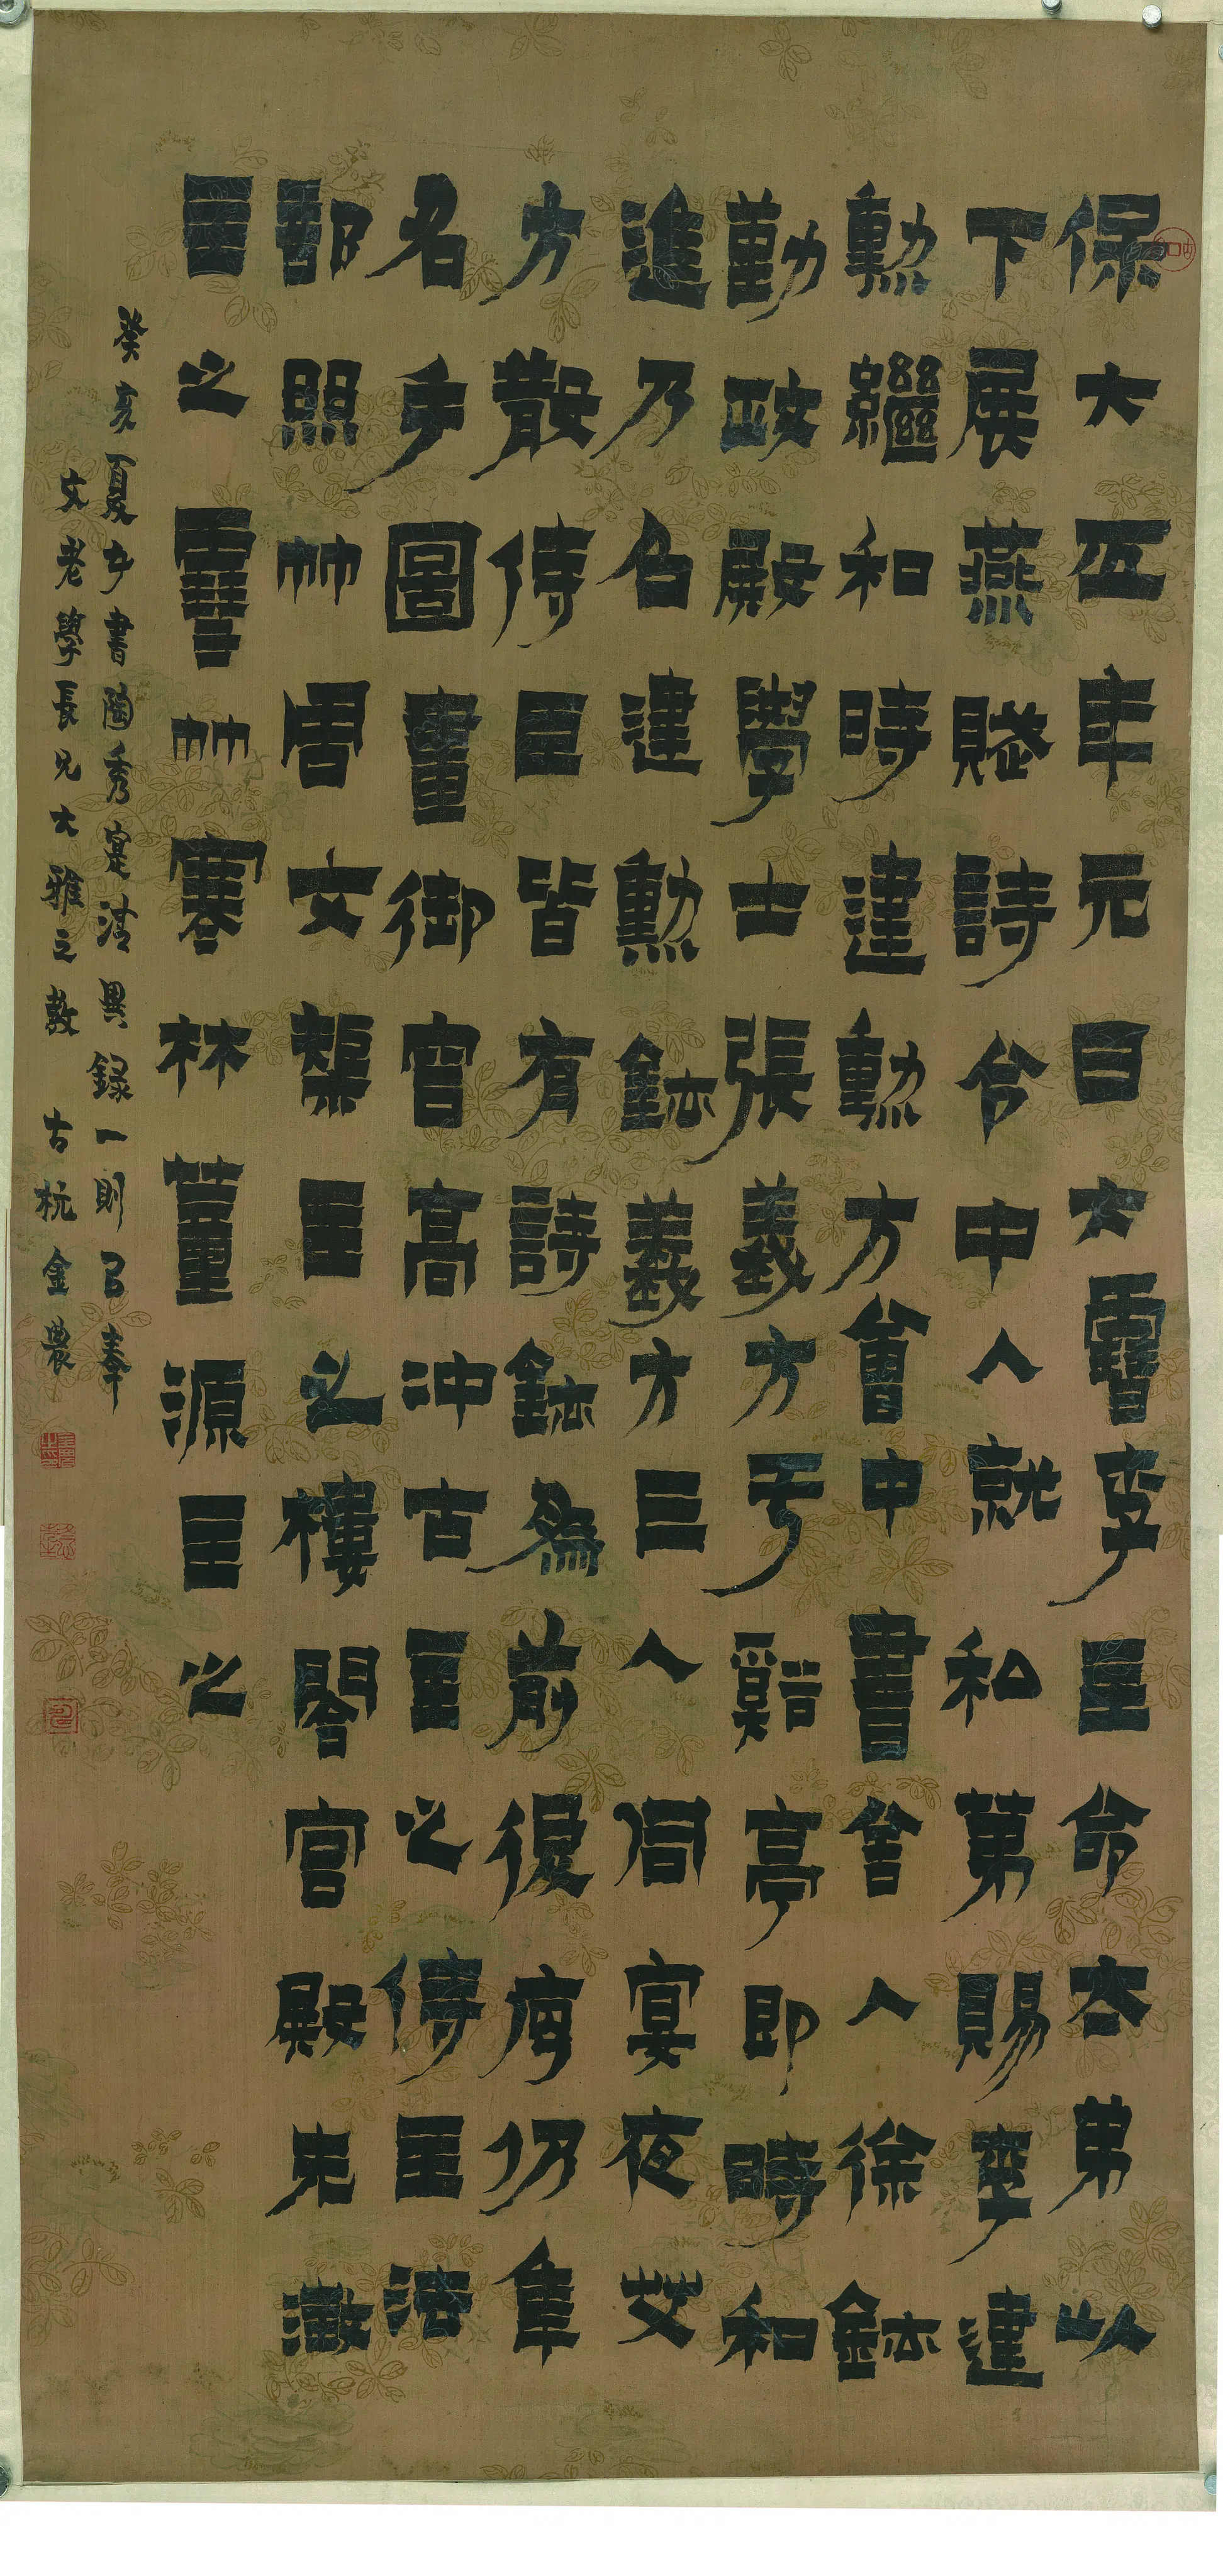 保大五年元日大雪李主命太弟以
下展燕賦詩令中人就私第賜李建
勳繼和時建勳方會中書舍人徐鉉
勤政殿學士張義方于谿亭即時和
進乃召建勳鉉義方巨人同宴夜艾
方散侍臣皆有詩鉉為前後序仍集
名手圖畫御容高沖古主之侍臣法
部照竹周文矩主之樓閣宮殿朱澂
主之雪竹寒林董源主之
癸亥夏書陶秀寔清異錄一則以奉
文老學長兄大雅之教 古杭金農